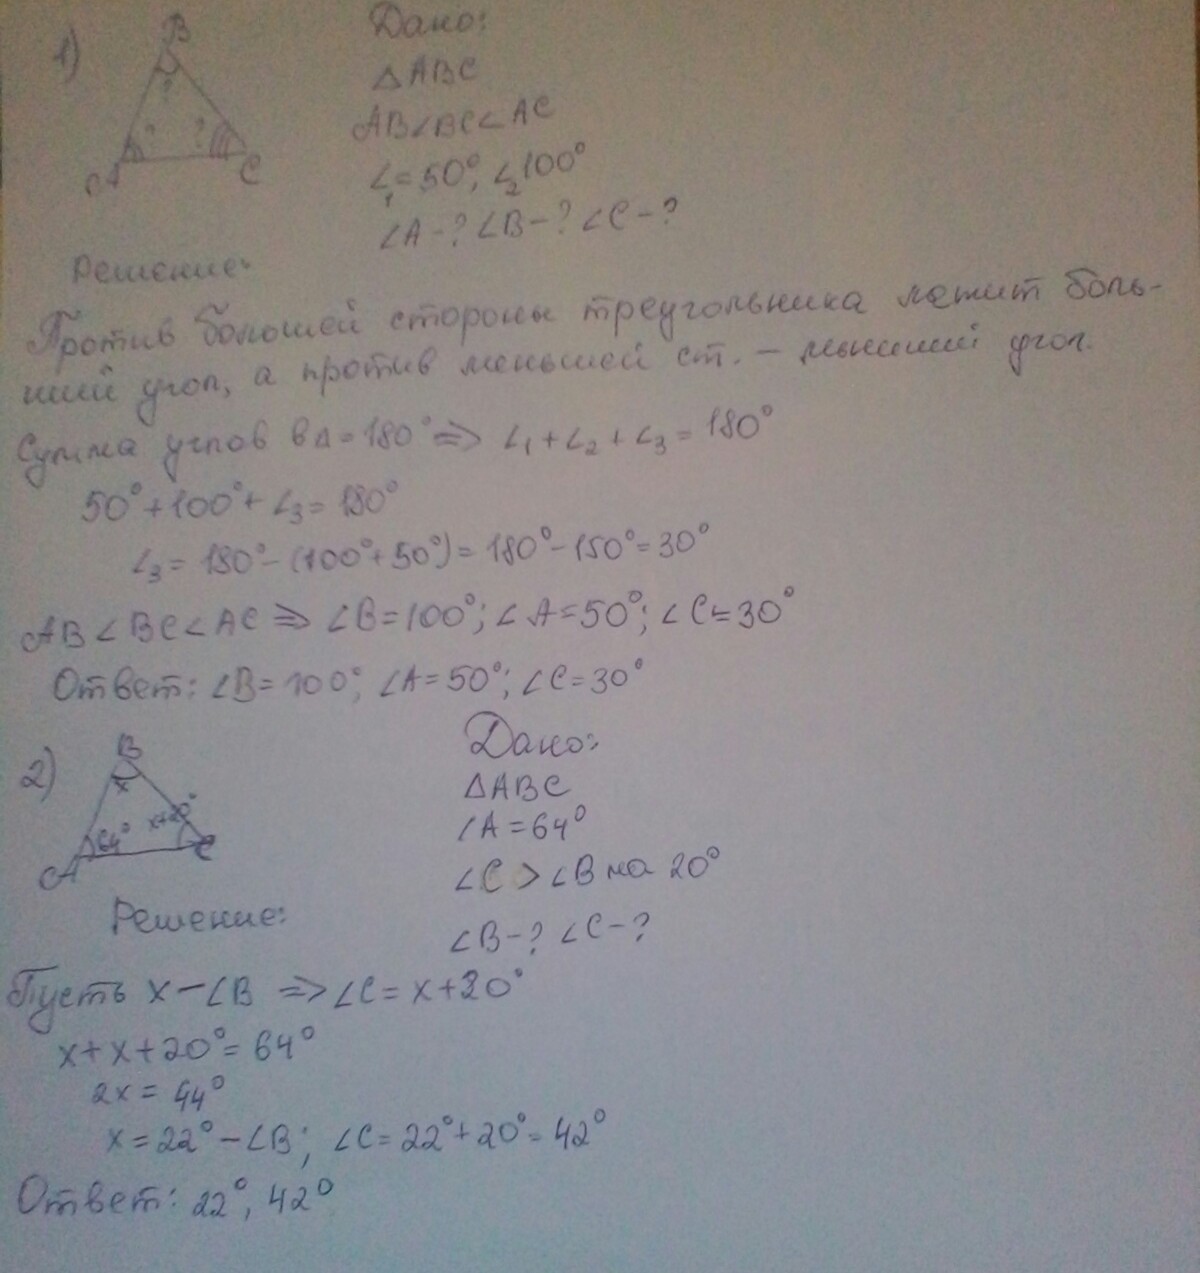 1)
B
? ? ?
A C
Дано:
△ABC
AB<BC<AC
∠₁=50°; ∠₂100°
∠A-? ∠B-? ∠C-?
Решение:
Против большей стороны треугольника лежит боль-
ший угол, а против меньшей ст. – меньший угол.
Сумма углов в △=180° ⇒ ∠₁+∠₂+∠₃=180°
50°+100°+∠₃=180°
∠₃=180°-(100°+50°)=180°-150°=30°
AB<BC<AC ⇒ ∠B=100°; ∠A=50°; ∠C=30°
Ответ: ∠B=100°; ∠A=50°; ∠C=30°
2)
B
x
64° x+20°
A C
Дано:
△ABC
∠A=64°
∠C>∠B на 20°
∠B-? ∠C-?
Решение:
Пусть x-∠B ⇒ ∠C=x+20°
x+x+20°=64°
2x=44°
x=22°-∠B; ∠C=22°+20°=42°
Ответ: 22°, 42°